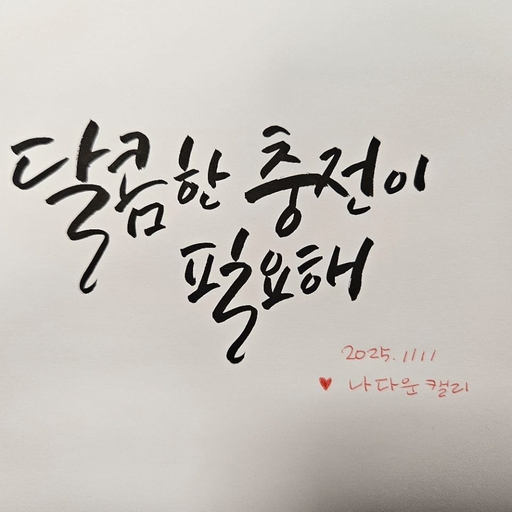 달콤한 충전이
필요해
2025. 11 11
♥ 나다운캘리